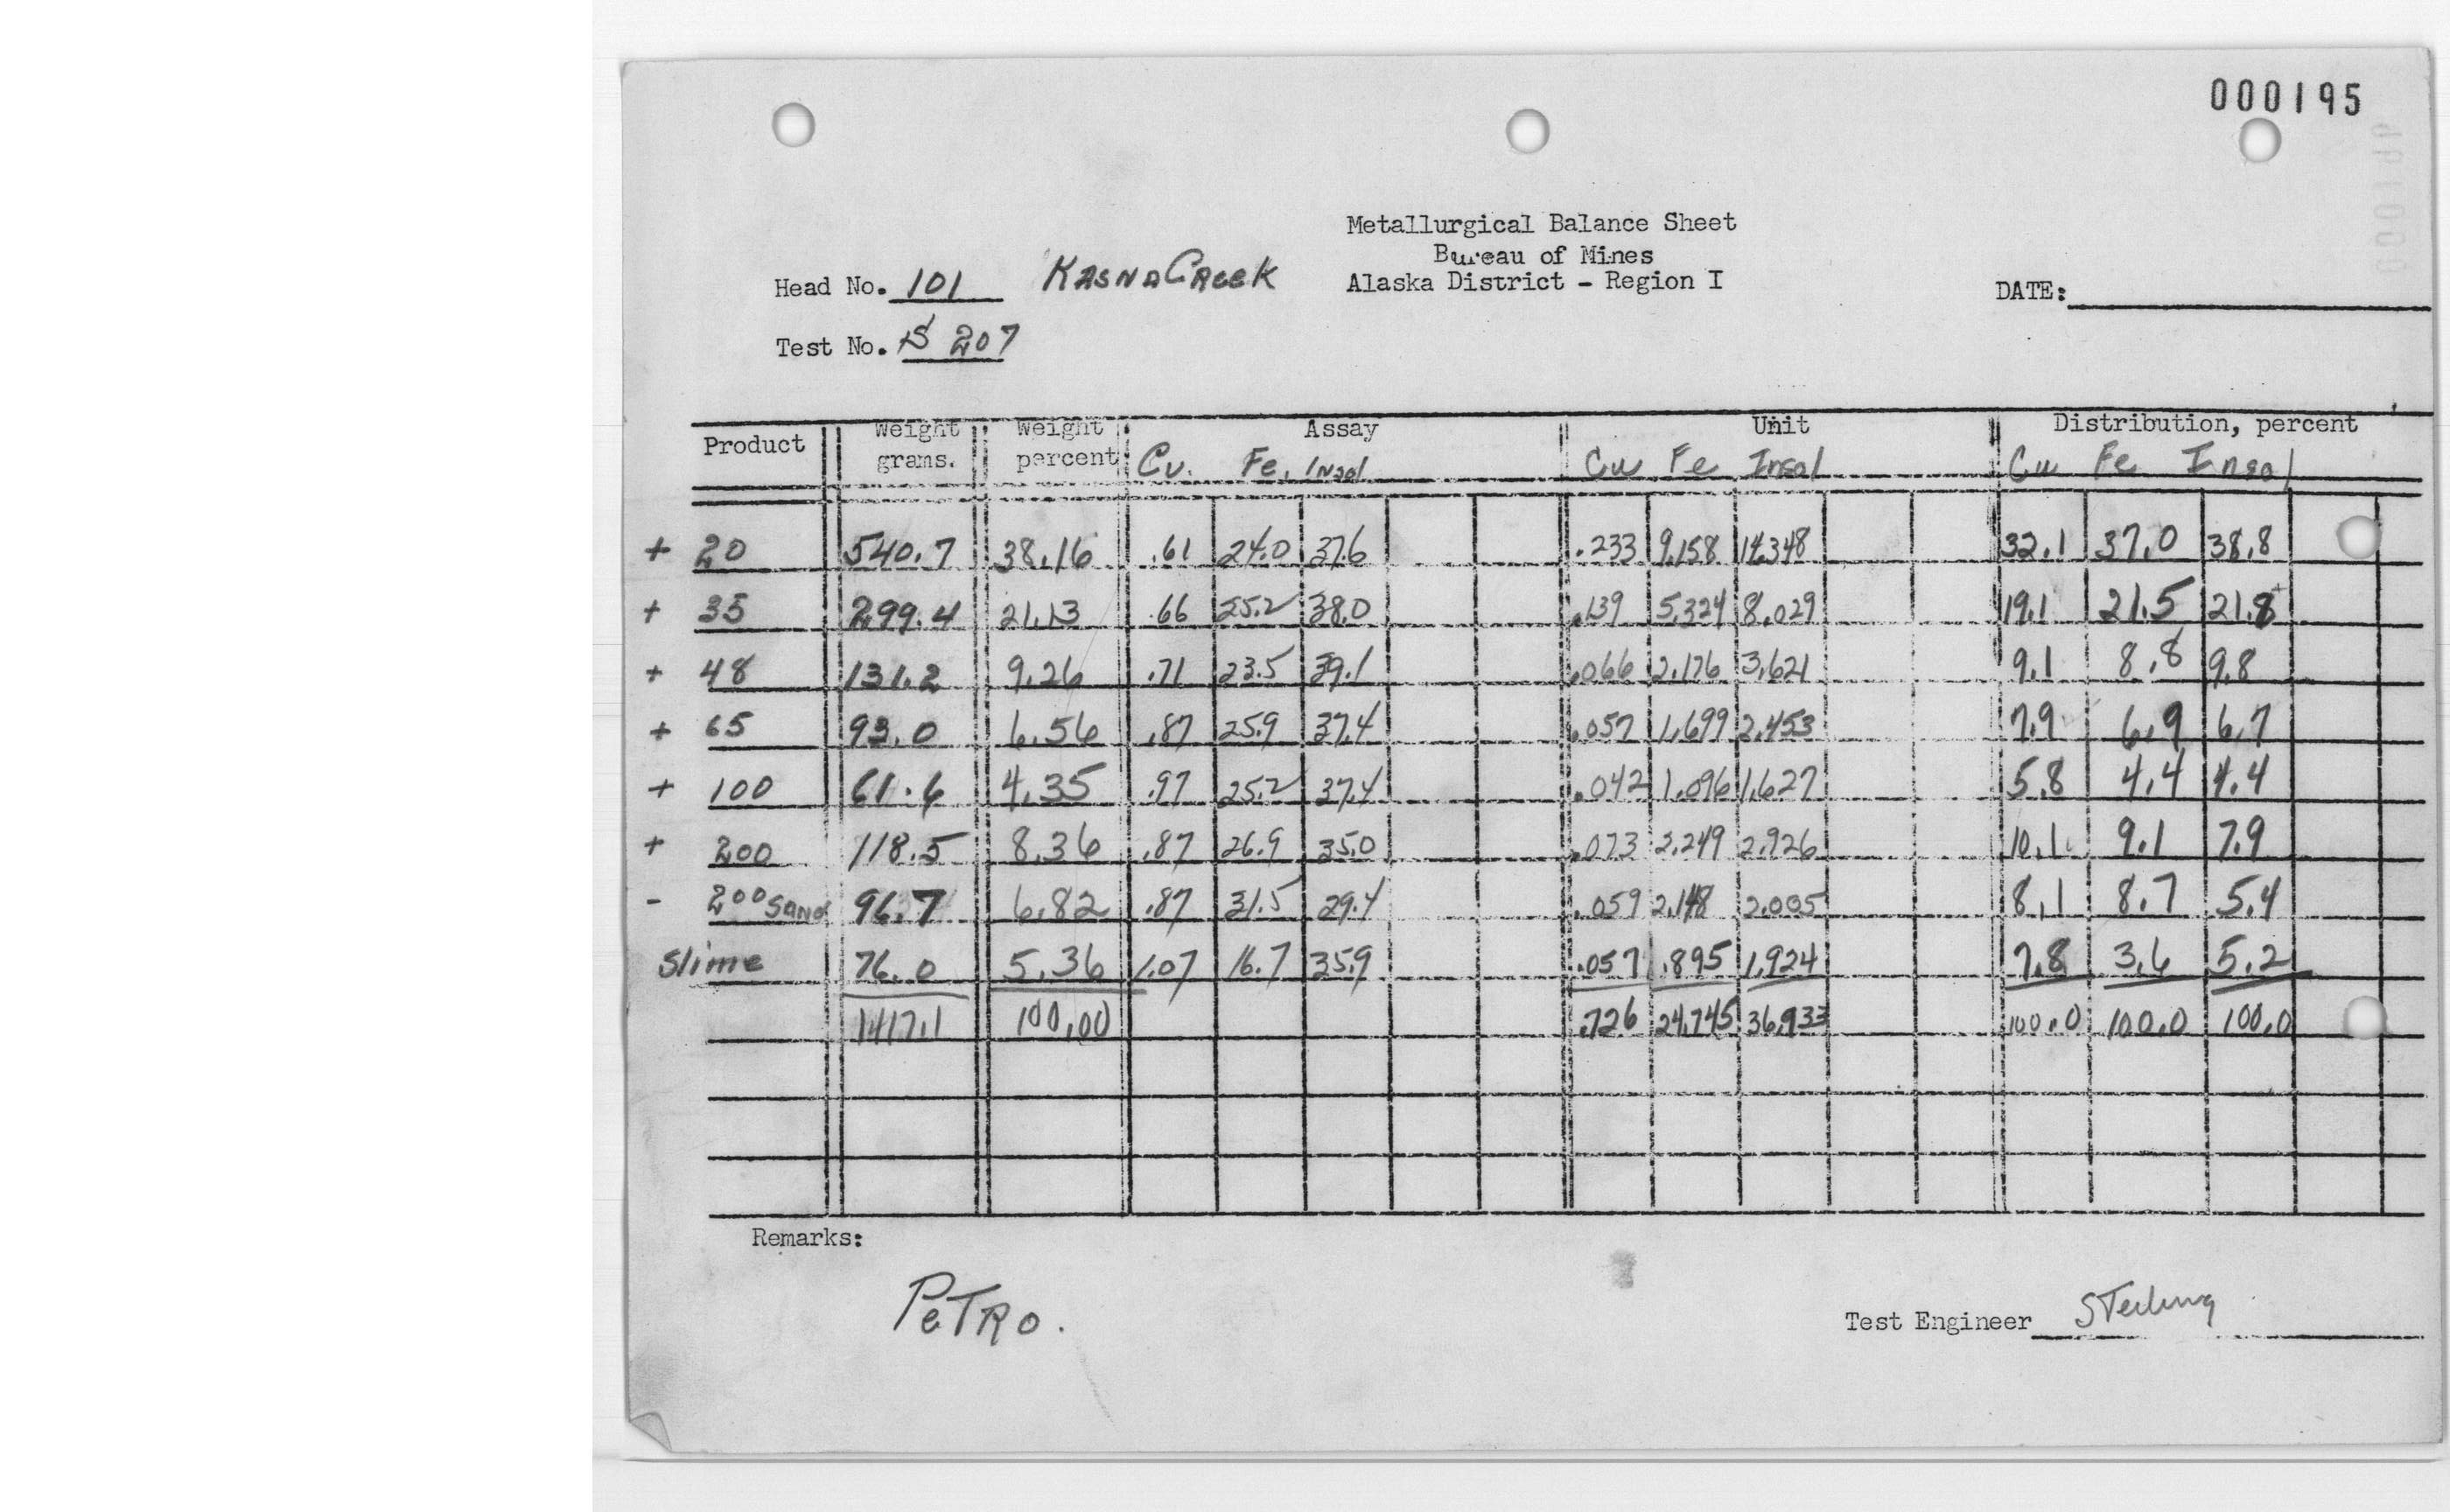 000195
Metallurgical Balance Sheet
Bureau of Mines
Head No. 101 KASNA CREEK Alaska District - Region I DATE:
Test No. S 207
Product Weight grams. Weight percent Assay Unit Distribution, percent
Cu. Fe. Insol Cu Fe Insol Cu Fe Insol
+ 20 540.7 38.16 .61 24.0 37.6 .233 9.158 14.348 32.1 37.0 38.8
+ 35 299.4 21.13 .66 25.2 38.0 .139 5.324 8.029 19.1 21.5 21.8
+ 48 131.2 9.26 .71 23.5 39.1 .066 2.176 3.621 9.1 8.8 9.8
+ 65 93.0 6.56 .87 25.9 37.4 .057 1.699 2.453 7.9 6.9 6.7
+ 100 61.6 4.35 .97 25.2 37.4 .042 1.096 1.627 5.8 4.4 4.4
+ 200 118.5 8.36 .87 26.9 35.0 .073 2.249 2.926 10.1 9.1 7.9
- 200 SAND 96.7 6.82 .87 31.5 29.4 .059 2.148 2.005 8.1 8.7 5.4
Slime 76.0 5.36 1.07 16.7 35.9 .057 .895 1.924 7.8 3.6 5.2
1417.1 100.00 .726 24.745 36.933 100.0 100.0 100.0
Remarks:
PETRO.
Test Engineer Sterling